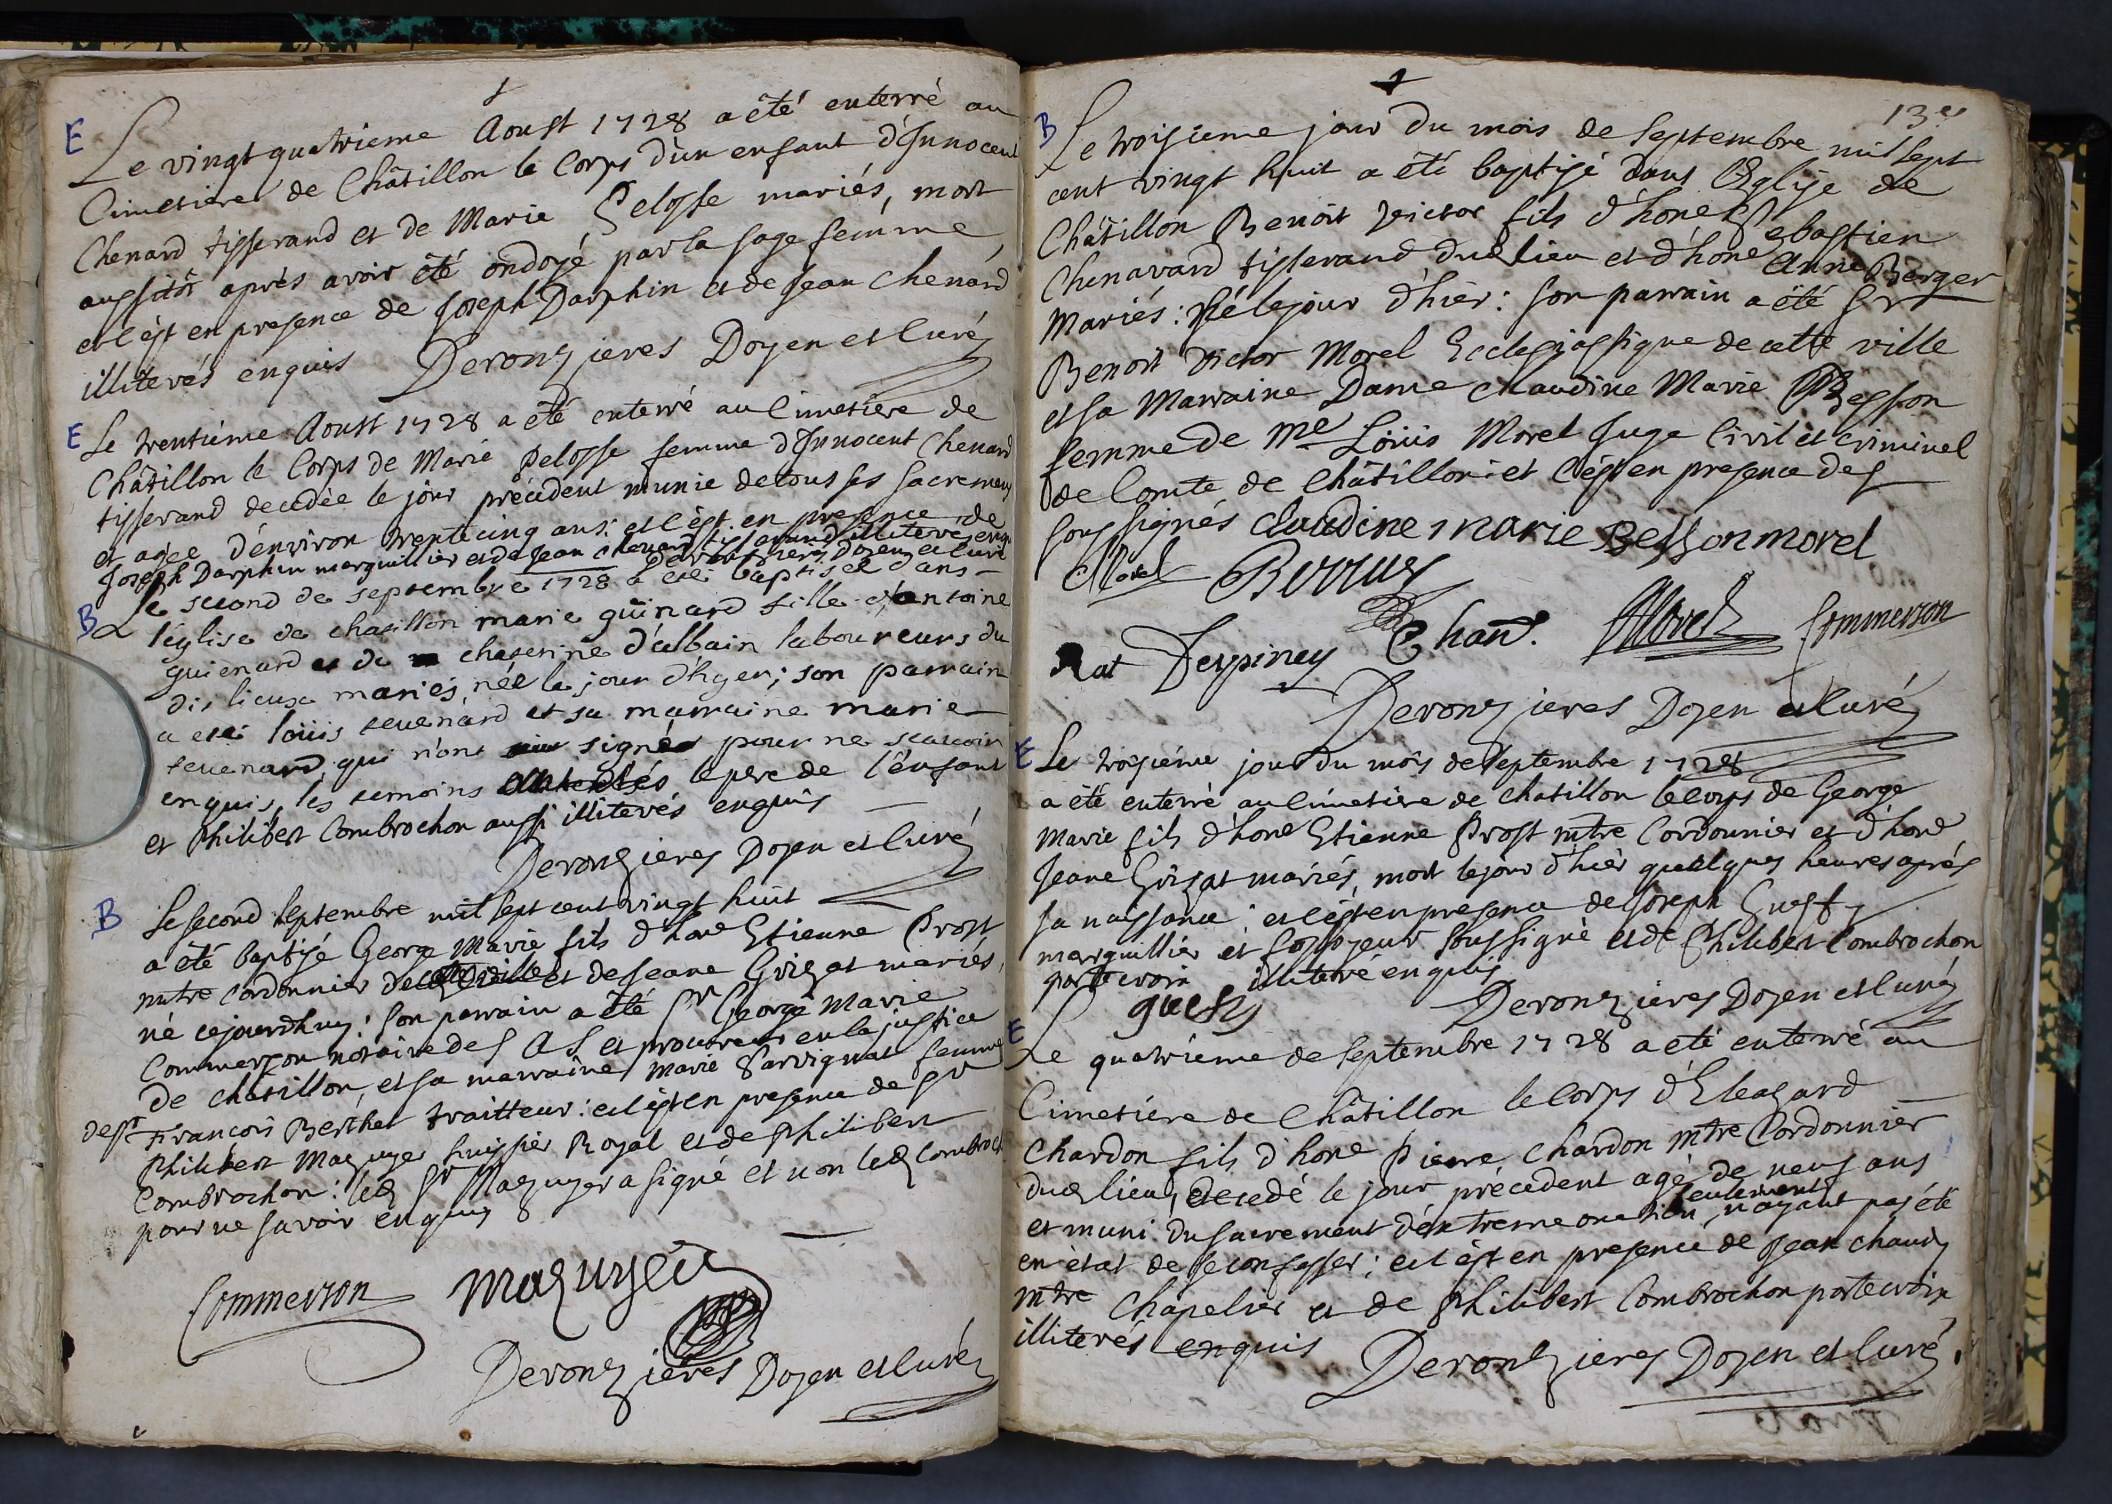 E Le vingt quatrieme Aoust 1728 a été enterré au
Cimetiere de Châtillon le Corps d'un enfant d'Innocent
Chenard tisserand et de Marie Pelosse mariés, mort
aussitôt après avoir été ondoyé par la sage femme
et c'est en presence de Joseph Darphin et de Jean Chenard
illiterés enquis Deronzieres Doyen et Curé
E Le trentiéme Aoust 1728 a été enterré au Cimetiere de
Châtillon le Corps de Marie Pelosse femme d'Innocent Chenard
tisserand decedée le jour précédent munie de tous ses sacremens
et agée d'environ trente cinq ans: et c'est en presence de
Joseph Darphin marguillier et de Jean Chenard tisserand illiterés enquis
Deronzieres Doyen et Curé
B Le second de septembre 1728 a été baptisée dans
l'église de chatillon marie guinard fille d'antoine
guienard et de chaterine d'albain laboureurs du
dis lieux mariés, née le jour d'hyer; son parrain
a eté loüis tevenard et sa marraine marie
tevenard, qui n'ont signé pour ne scavoir
enquis, les temoins le pere de l'enfant
et Philibert Combrochon aussi illiterés enquis
Deronzieres Doyen et Curé
B Le second septembre mil sept cent vingt huit
a été baptisé George Marie fils d'hone Etienne Prost
mtre cordonnier de cette ville et de Jeane Grizat mariés,
né cejourdhuy: son parrain a été Sr George Marie
Commerson notaire des A S et procureur en la justice
de chatillon, et sa marraine Marie Sarvignat femme
de Sr Francois Berthet traitteur: et c'est en presence de Sr
Philibert Mazuyer huissier Royal et de Philibert
Combrochon: led Sr Mazuyer a signé et non led Combroch
pour ne savoir enquis
Commerson Mazuyer
Deronzieres Doyen et Curé
13e
B Le troisieme jour du mois de septembre mil sept
cent vingt huit a été baptisé dans l'Eglise de
Châtillon Benoit Victor fils d'hone Sebastien
Chenavard tisserand dud lieu et d'hone Anne Berger
Mariés: Né le jour d'hier: son parrain a été Sr
Benoit Victor Morel Ecclesiastique de cette ville
et sa Marraine Dame Claudine Marie Besson
femme de Me Loüis Morel Juge Civil et criminel
de Comte de Châtillon: et c'est en presence des
soussignés claudine marie Besson morel
Morel
Rat Despiney Chan. Morel Commerson
Deronzieres Doyen et Curé
E Le troisiéme jour du mois de septembre 1728
a été enterré au Cimetiere de chatillon le corps de George
Marie fils d'hone Etienne Prost mtre Cordonnier et d'hone
Jeane Grizat mariés, mort le jour d'hier quelques heures aprés
sa naissance: et c'est en presence de Joseph Guest
marguillier et fossoyeur soussigné et de Philibert Combrochon
porte croix illiteré enquis
guest Deronzieres Doyen et Curé
E Le quatrieme de septembre 1728 a eté enterré au
Cimetiére de Châtillon le Corps d'Eleazard
Chardon fils d'hone Pierre Chardon mtre Cordonnier
dud lieu, decedé le jour précedent agé de neuf ans
et muni du sacrement d'extreme onction seulement, n'ayant pas été
en état de se confesser: et c'est en presence de Jean Chaudy
mtre Chapelier et de Philibert Combrochon porte croix
illiterés enquis Deronzieres Doyen et Curé